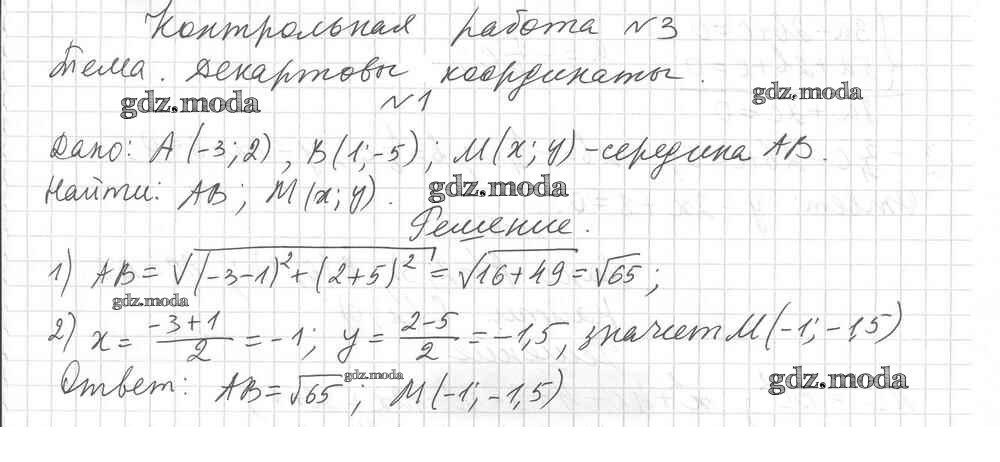 Контрольная работа №3
Тема. Декартовы координаты.
gdz.moda
gdz.moda
№1
Дано: A(-3; 2), B(1; -5); M(x; y) - середина AB.
Найти: AB; M(x; y).
gdz.moda
Решение.
1) AB = √((-3-1)² + (2+5)²) = √(16+49) = √65;
gdz.moda
2) x = (-3+1)/2 = -1; y = (2-5)/2 = -1,5, значит M(-1; -1,5)
Ответ: AB = √65; M(-1; -1,5)
gdz.moda
gdz.moda